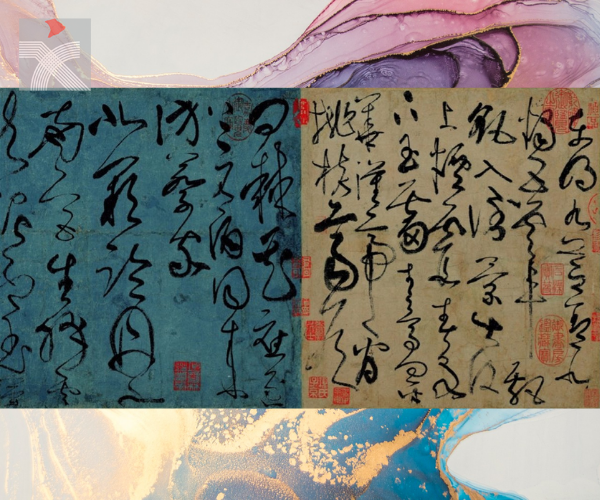 東明九芝蓋北
燭五雲車飄
飖入倒景出没
上煙霞春泉
下玉霤青鳥向金
華漢帝看
桃核齊侯
問棗花應逐
上元酒同来
訪蔡家
北闕臨丹水
南宮生絳雲